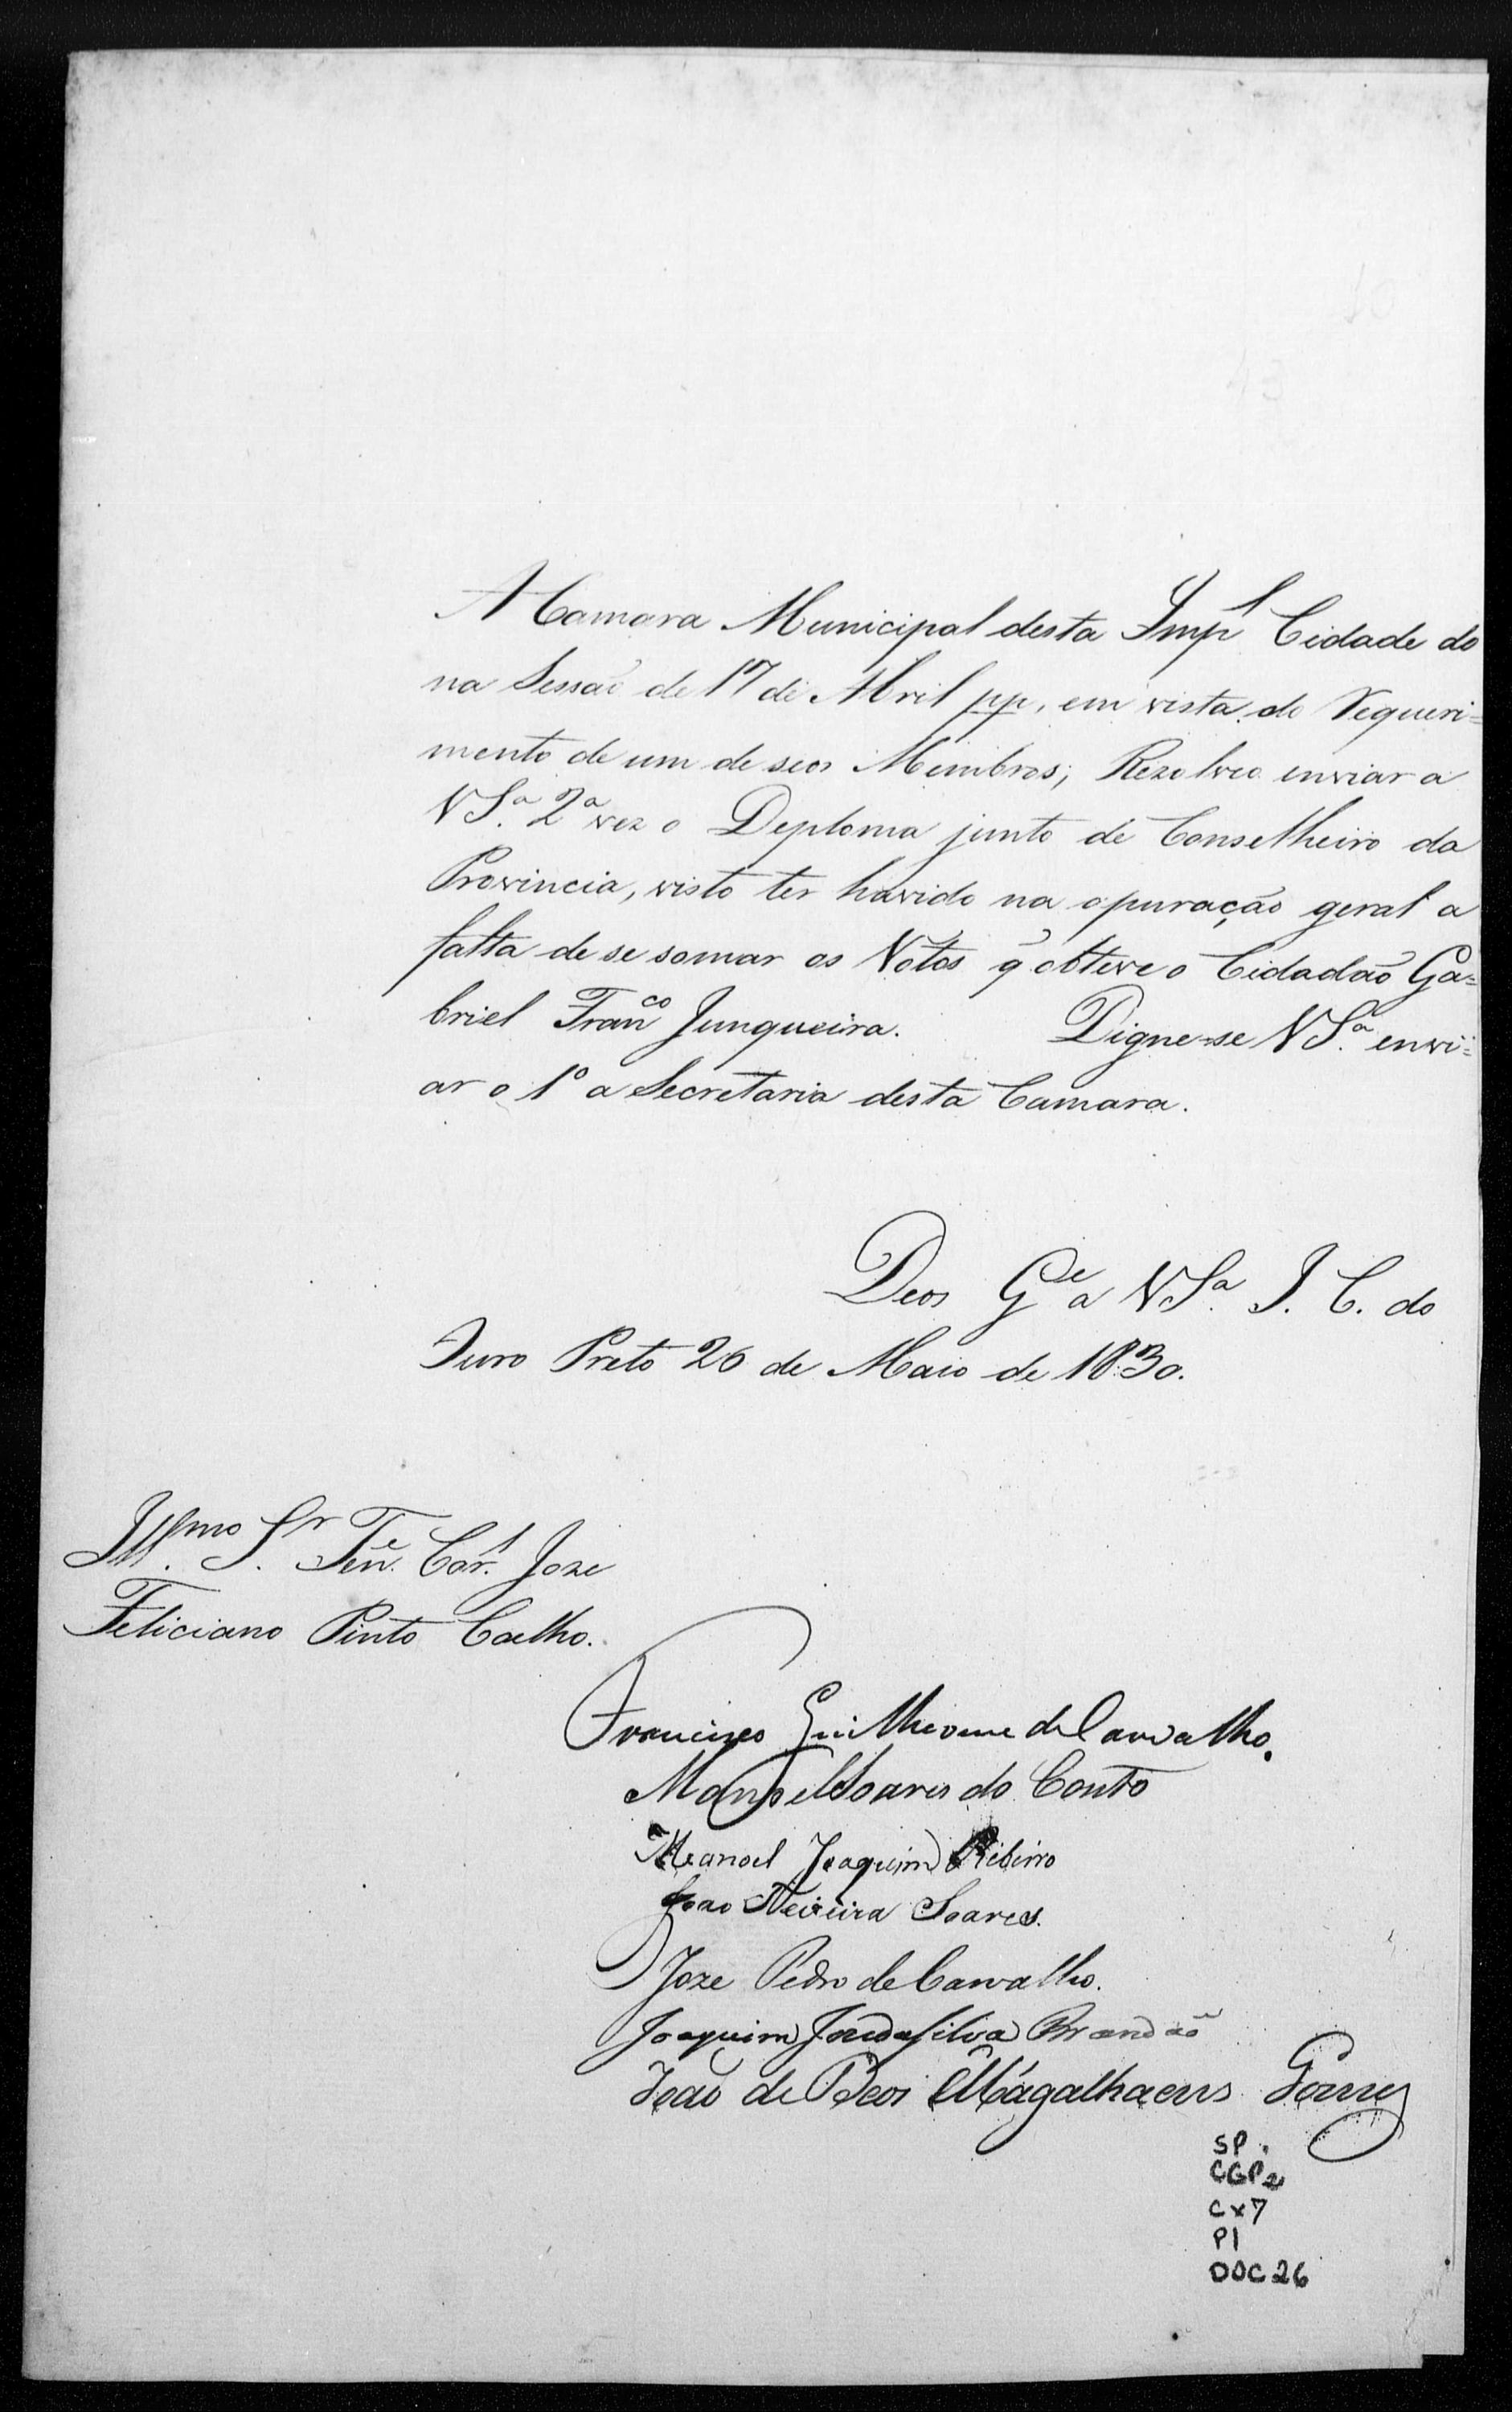 A Camara Municipal desta Imp.l Cidade do
na Sessão de 17 de Abril pp, em vista do Requeri=
mento de um de seos Membros, Rezolveo enviar a
VS.a 2a vez o Deploma junto de Conselheiro da
Provincia, visto ter havido na apuração geral a
falta de se somar os Votos q̃ obteve o Cidadão Ga=
briel Fran.co Junqueira. Digne-se VS.a envi=
ar o 1o a Secretaria desta Camara.
Deos G.e a VS.a I. C. do
Ouro Preto 26 de Maio de 1830.
Ill.mo S.r Ten.e Cor.l Joze
Feliciano Pinto Coelho.
Francisco Guilherme de Carvalho.
Manoel Soares do Couto
Manoel Joaquim Ribeiro
João Teixeira Soares.
Joze Pedro de Carvalho.
Joaquim Joze da Silva Brandaõ
João de Deos Magalhaens Gomes
SP.
CGP2
Cx7
P1
DOC26